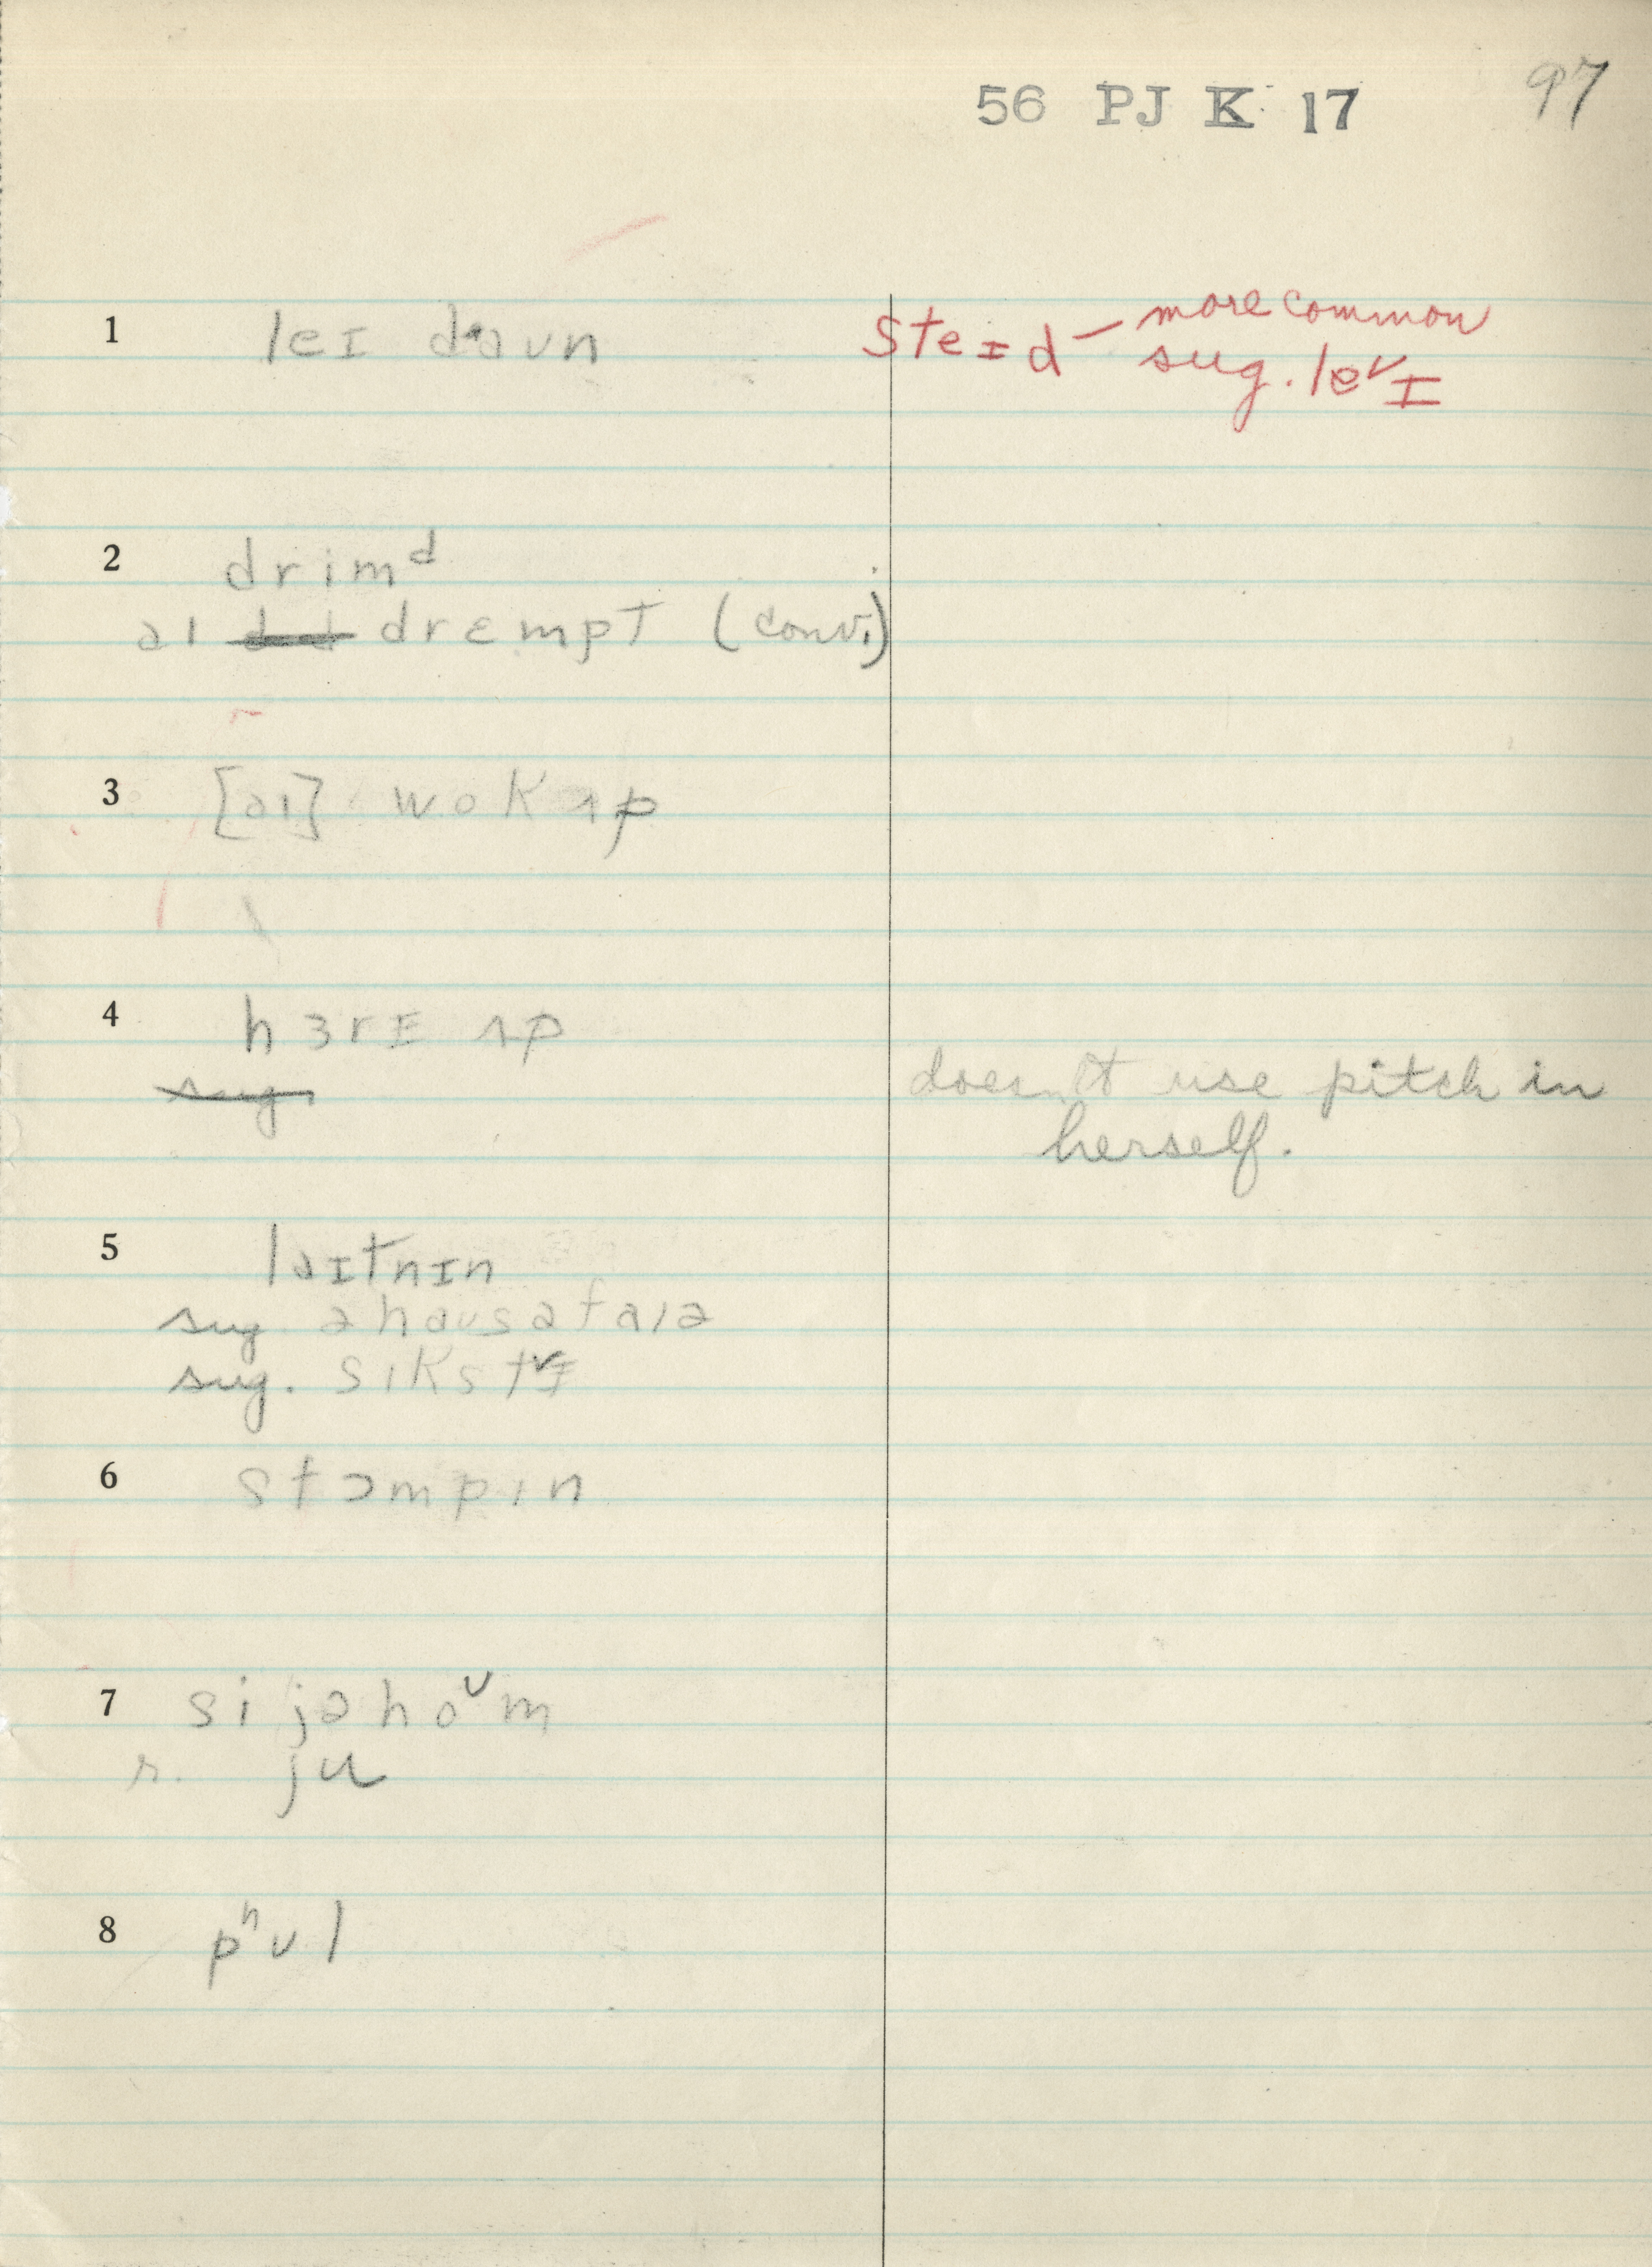 56 PJ K 17 97
1 leɪ daʊn steɪd – more common
sug. le˅ɪ
2 drimᵈ
aɪ drɛmpt (conv.)
3 [aɪ] wok ʌp
4 hɜrɪ ʌp
sug doesn't use pitch in
herself.
5 laɪtnɪn
sug. ə haus ə faɪə
sug. sɪkst˅ɪ
6 stɔmpɪn
7 si jə hoᵘm
r. ju
8 pʰʊl